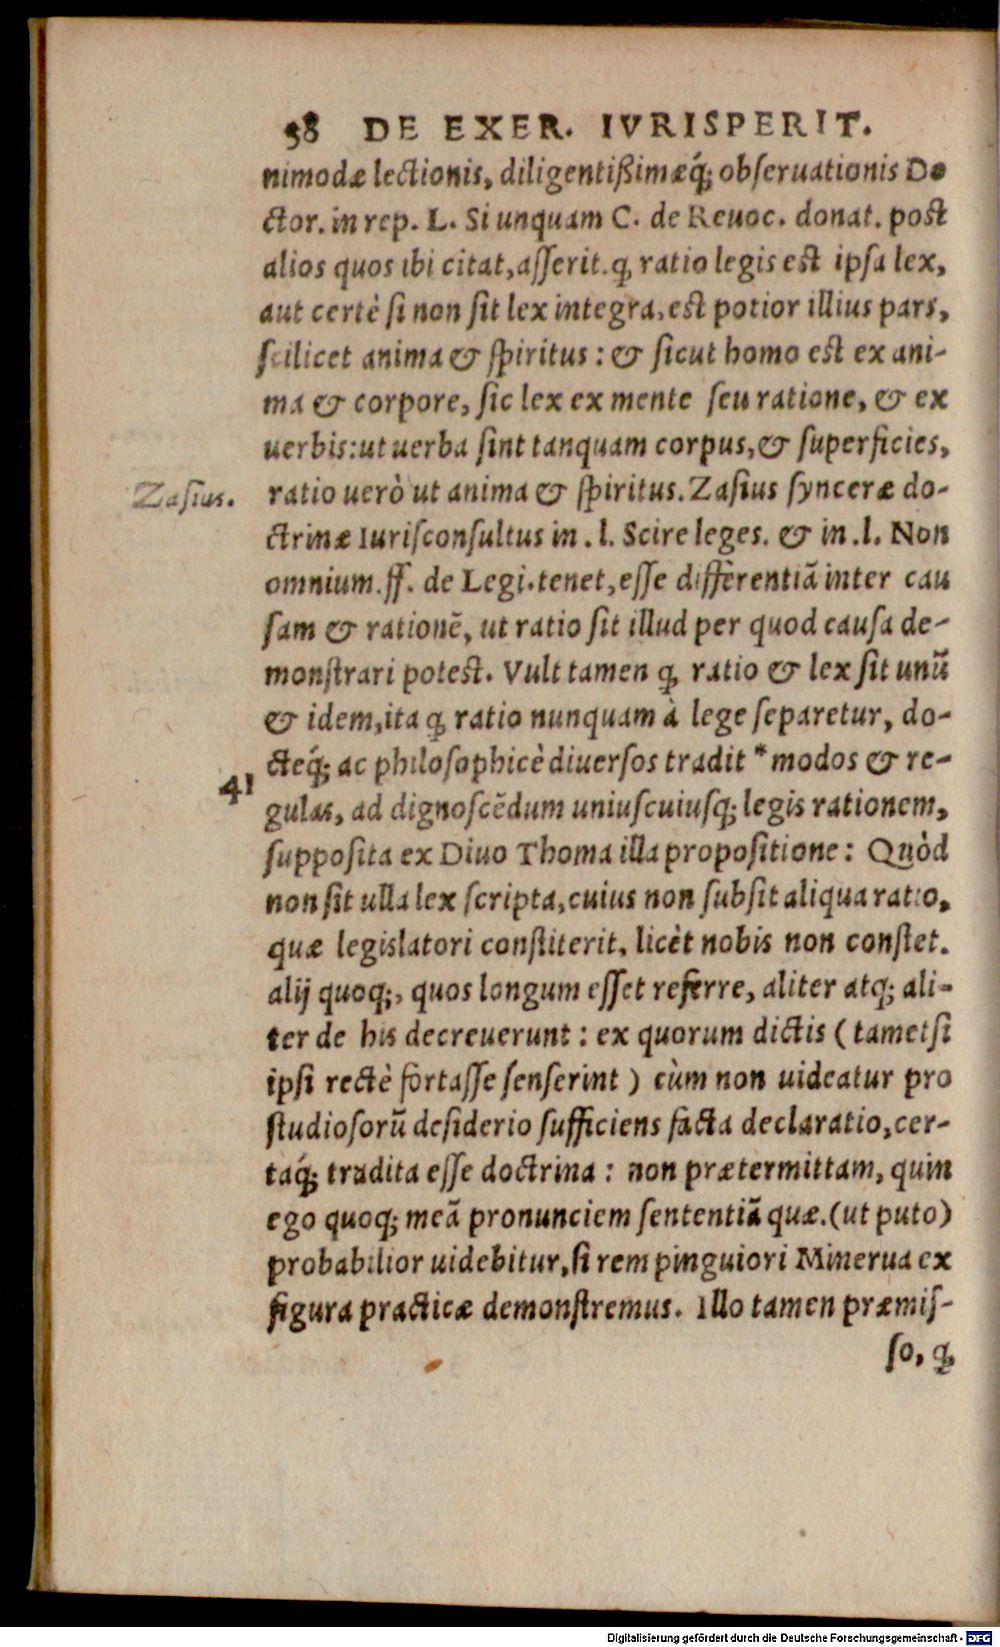 58 DE EXER. IVRISPERIT.
nimodæ lectionis, diligentißimæq́; obſeruationis Do
ctor. in rep. L. Si unquam C. de Reuoc. donat. post
alios quos ibi citat, aſſerit. ꝙ ratio legis est ipſa lex,
aut certè ſi non ſit lex integra, est potior illius pars,
ſcilicet anima & ſpiritus: & ſicut homo est ex ani-
ma & corpore, ſic lex ex mente ſeu ratione, & ex
uerbis: ut uerba ſint tanquam corpus, & ſuperficies,
Zaſius.
ratio uerò ut anima & ſpiritus. Zaſius ſynceræ do-
ctrinæ Iuriſconſultus in .l. Scire leges. & in .l. Non
omnium. ff. de Legi. tenet, eſſe differentiã inter cau
ſam & rationẽ, ut ratio ſit illud per quod cauſa de-
monſtrari potest. Vult tamen ꝙ ratio & lex ſit unũ
& idem, ita ꝙ ratio nunquam à lege ſeparetur, do-
cteq́; ac philoſophicè diuerſos tradit * modos & re-
41
gulas, ad dignoſcẽdum uniuſcuiuſq; legis rationem,
ſuppoſita ex Diuo Thoma illa propoſitione: Quòd
non ſit ulla lex ſcripta, cuius non ſubſit aliqua ratio,
quæ legislatori conſtiterit, licèt nobis non conſtet.
alij quoq;, quos longum eſſet referre, aliter atq; ali-
ter de his decreuerunt: ex quorum dictis (tametſi
ipſi rectè fortaſſe ſenſerint) cùm non uideatur pro
ſtudioſorũ deſiderio ſufficiens facta declaratio, cer-
taq́; tradita eſſe doctrina: non prætermittam, quin
ego quoq; meã pronunciem ſententiã quæ. (ut puto)
probabilior uidebitur, ſi rem pinguiori Minerua ex
figura practicæ demonſtremus. Illo tamen præmiſ-
ſo, ꝙ
Digitalisierung gefördert durch die Deutsche Forschungsgemeinschaft - DFG